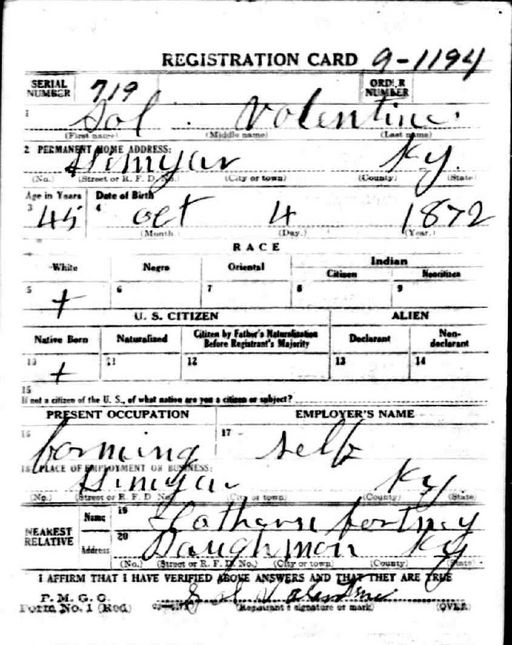 REGISTRATION CARD 9-1194
SERIAL NUMBER 719 ORDER NUMBER
1 Sol Volentine
(First name) (Middle name) (Last name)
2 PERMANENT HOME ADDRESS:
Himyar Ky.
(No.) (Street or R. F. D. No.) (City or town) (County) (State)
Age in Years Date of Birth
3 45 4 oct 4 1872
(Month.) (Day.) (Year.)
RACE
White Negro Oriental Indian
Citizen Noncitizen
5 + 6 7 8 9
U. S. CITIZEN ALIEN
Native Born Naturalized Citizen by Father's Naturalization Before Registrant's Majority Declarant Non-declarant
10 + 11 12 13 14
15
If not a citizen of the U. S., of what nation are you a citizen or subject?
PRESENT OCCUPATION EMPLOYER'S NAME
16 farming 17 self
18 PLACE OF EMPLOYMENT OR BUSINESS:
Himyar Ky.
(No.) (Street or R. F. D. No.) (City or town) (County) (State)
NEAREST RELATIVE Name 19
Address 20 Ky
(No.) (Street or R. F. D. No.) (City or town) (County) (State)
I AFFIRM THAT I HAVE VERIFIED ABOVE ANSWERS AND THAT THEY ARE TRUE
P. M. G. O.
Form No. 1 (Red) Sol Valentine
(Registrant's signature or mark) (OVER)